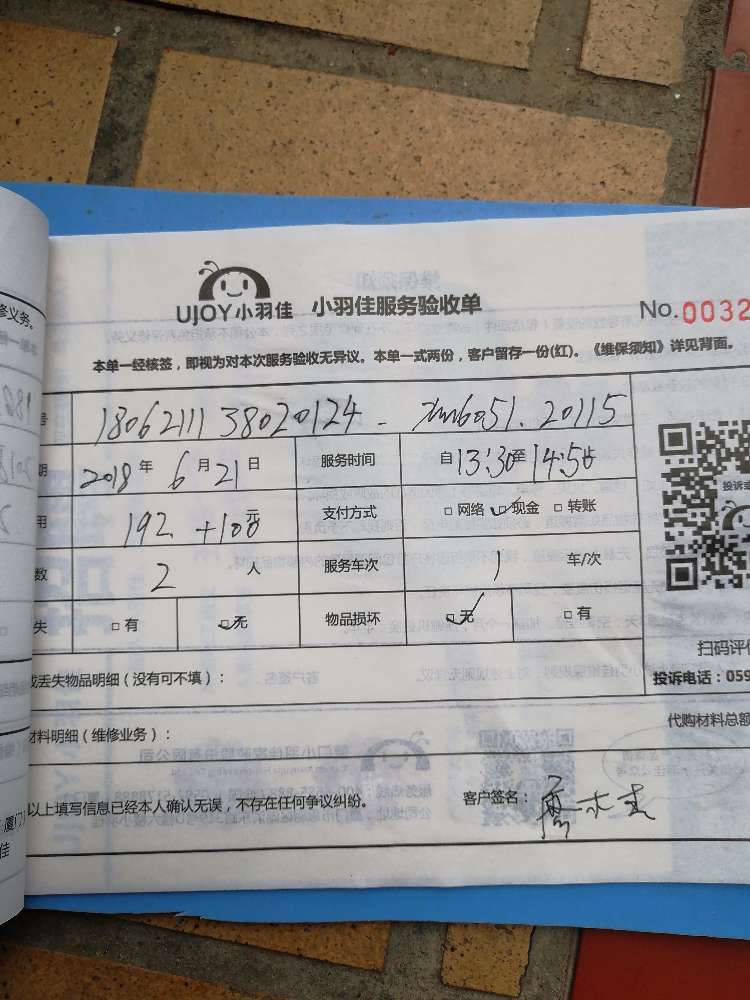 修义务。
UJOY小羽佳 小羽佳服务验收单
No.0032
本单一经核签，即视为对本次服务验收无异议。本单一式两份，客户留存一份(红)。《维保须知》详见背面。
号 1806211138020124 - xm6051.20115
期 2018年6月21日 服务时间 自13:30至14:50止
用 192+100元 支付方式 □网络 ☑现金 □转账
数 2人 服务车次 1 车/次
失 □有 ☑无 物品损坏 ☑无 □有
投诉
扫码评价
或丢失物品明细（没有可不填）： 投诉电话：059
代购材料总额
材料明细（维修业务）：
以上填写信息已经本人确认无误，不存在任何争议纠纷。 客户签名：
厦门
佳